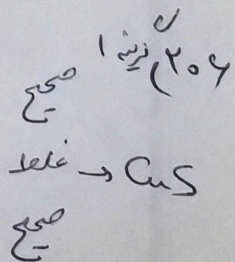 ۲۰۶ گزینه ۱
صحیح
غلط → CuS
صحیح